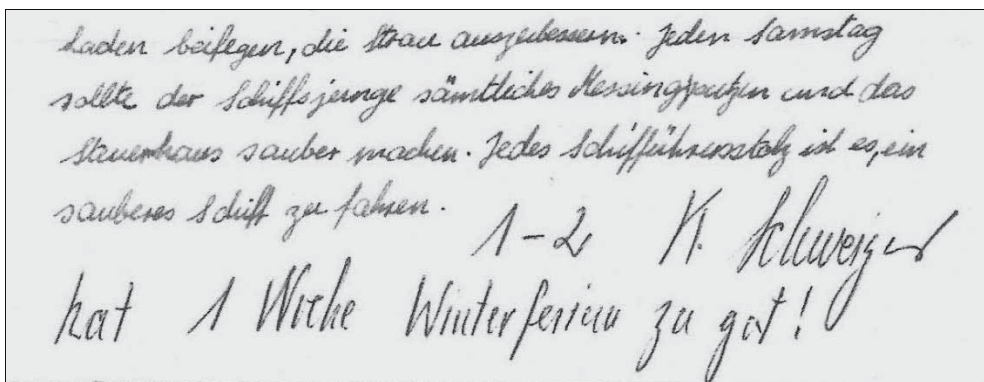 Laden beifegen, die Strau auszubessern. Jeden Samstag
sollte der Schiffsjunge sämtliches Messing putzen und das
Steuerhaus sauber machen. Jedes Schiffführersstolz ist es, ein
sauberes Schiff zu fahren.
1-2 K. Schweizer
hat 1 Woche Winterferien zu gut!